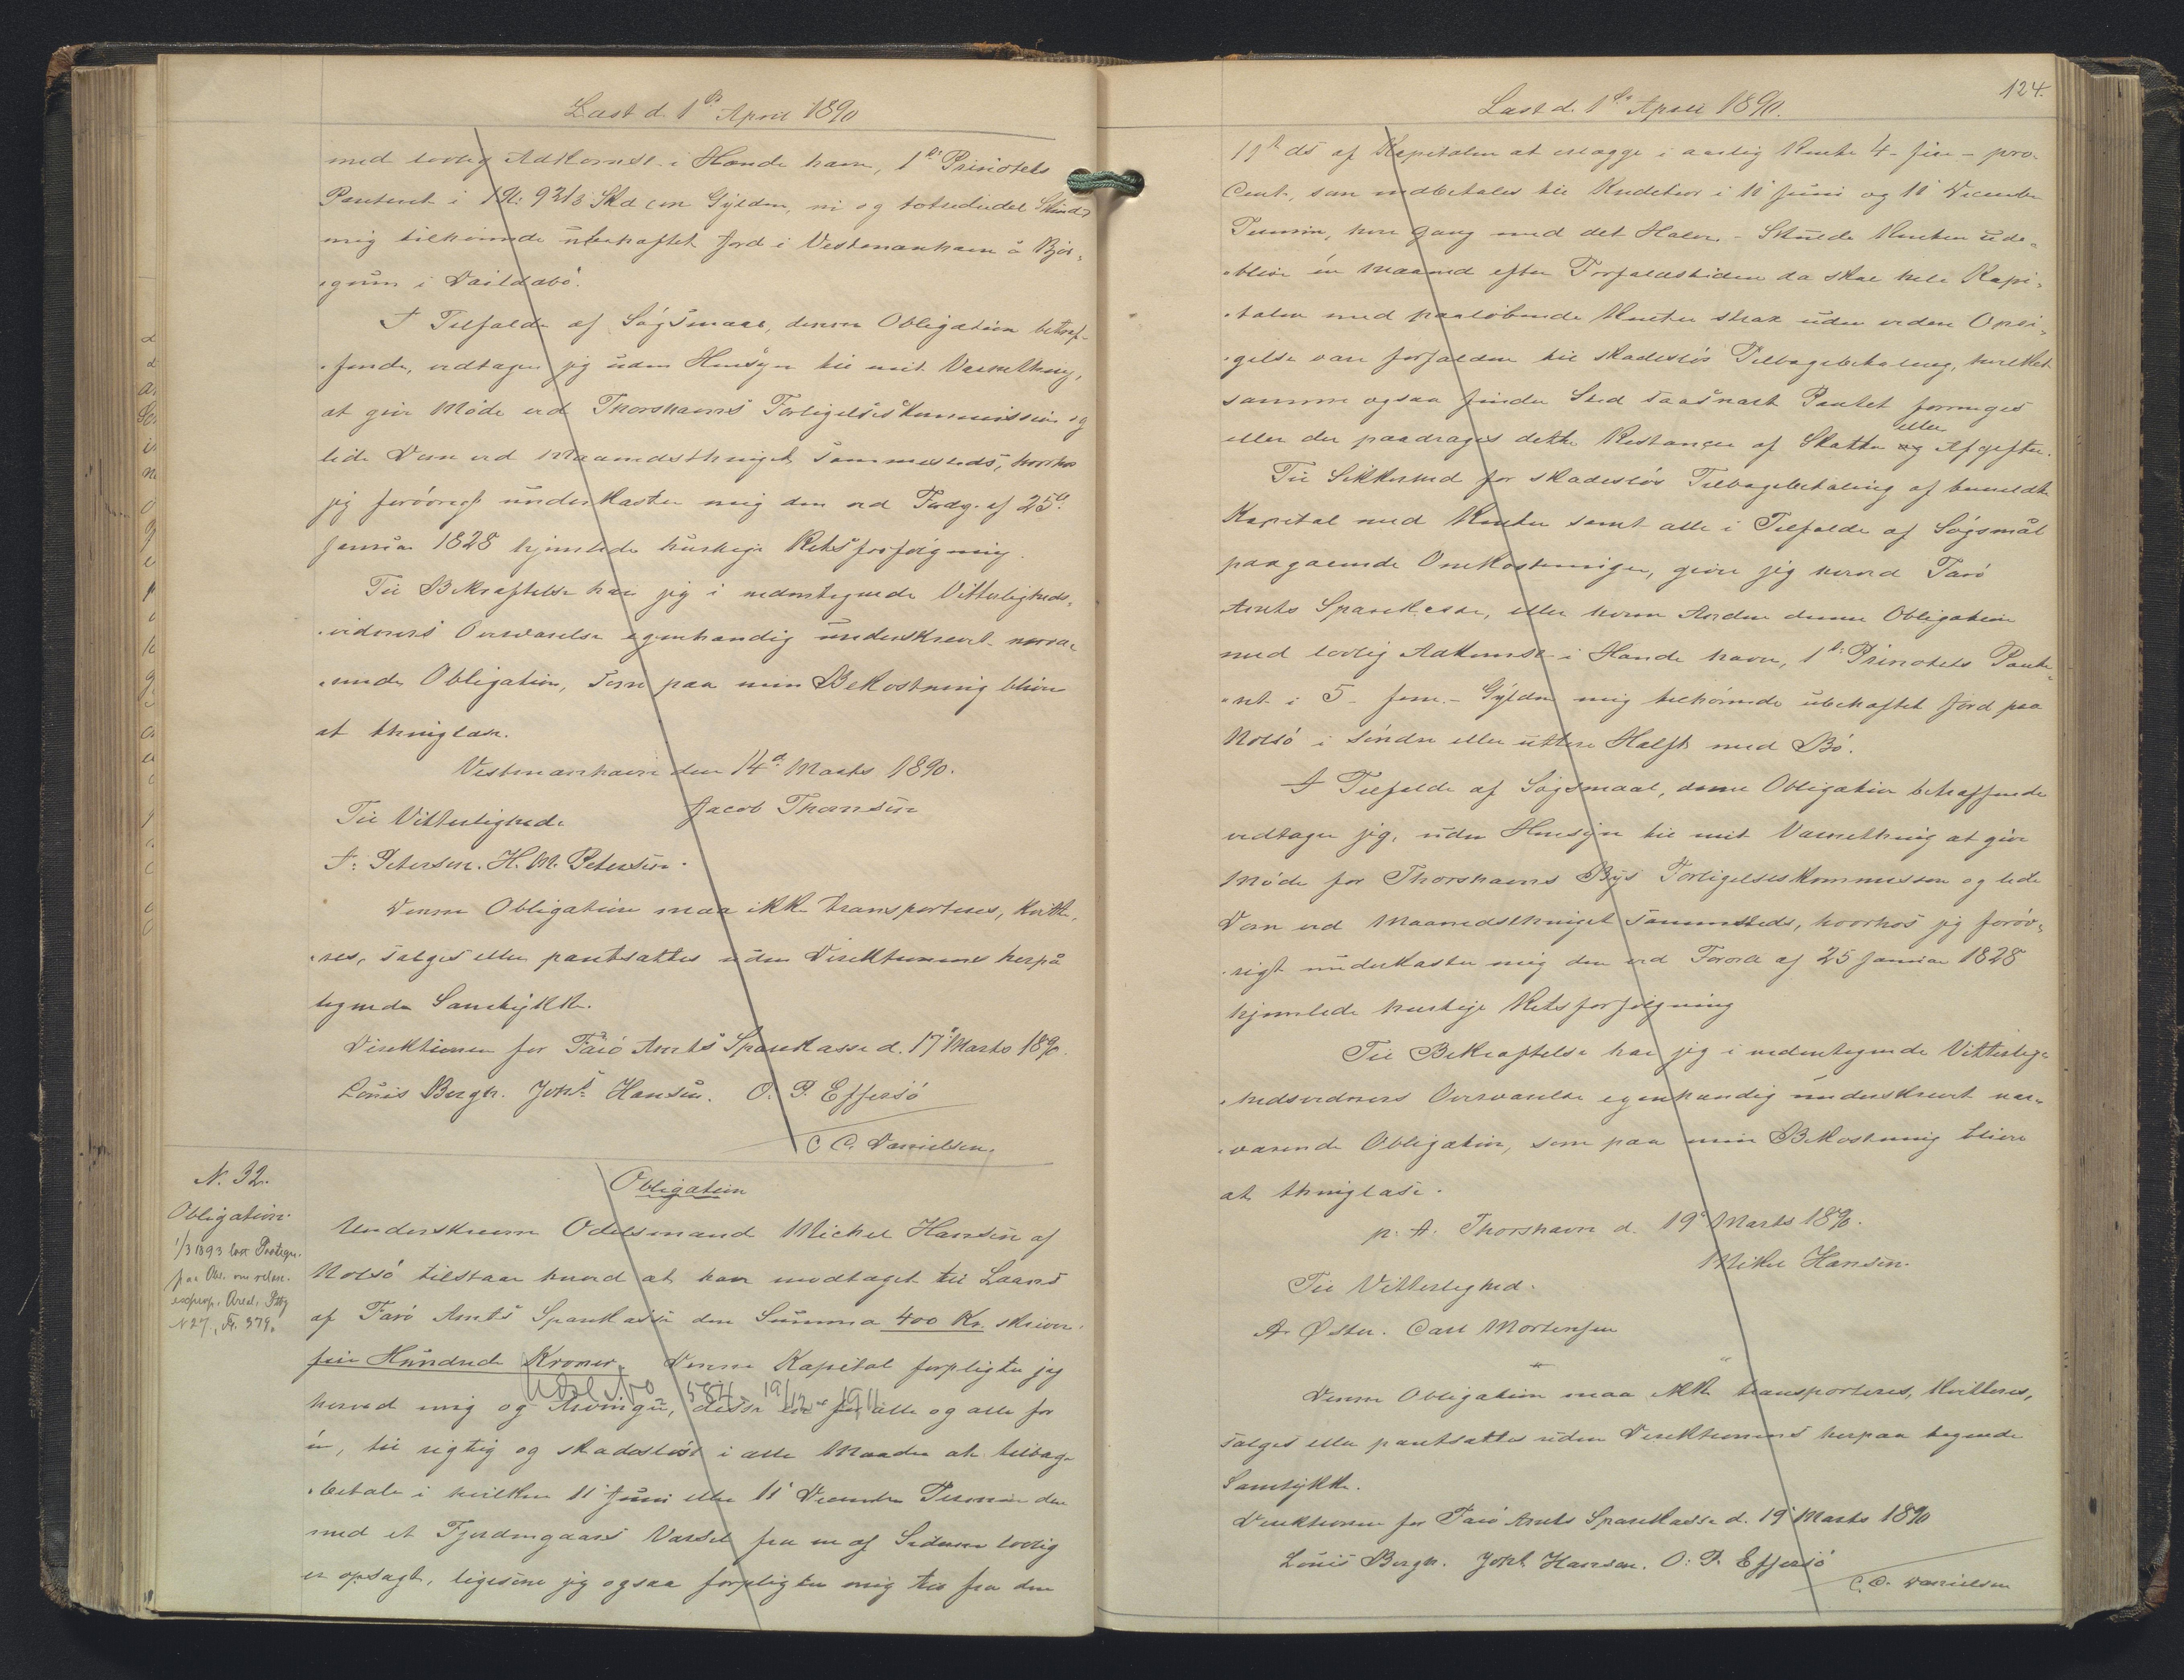 Læst d. 1ste April 1890
med lovlig Adkomst i Hænde have, 1ste Prioritets
Panteret i 1 M: 9 2/3 Skd (en Gylden, ni og totrediedel Skind)
mig tilhørende ubehæftet Jord i Vestmanhavn å Bjør-
gum i Váldabø.
I Tilfælde af Søgsmaal, denne Obligation betræf-
fende, vedtager jeg uden Hensyn til mit Værnething,
at give Møde ved Thorshavns Forligelseskommission og
lide Dom ved Maanedsthinget sammesteds, hvorhos
jeg forøvrigt underkaster mig den ved Frdg. af 25d
Januar 1828 hjemlede hurtige Retsforfølgning.
Til Bekræftelse har jeg i nedentegnede Vitterligheds-
vidners Overværelse egenhændig underskrevet nærvæ-
rende Obligation, som paa min Bekostning bliver
at thinglæse.
Vestmanhavn den 14d Marts 1890.
Jacob Thomsen
Til Vitterlighed:
J. Petersen. H. M. Petersen.
Denne Obligation maa ikke transporteres, kvitte-
res, sælges eller pantsættes uden Direktionens herpå
tegnede Samtykke.
Direktionen for Færø Amts Sparekasse d. 17 Marts 1890.
Louis Bergh. Johs Hansen. O. P. Effersø
C. C. Danielsen.
N. 32.
Obligation.
1/3 1893 læst
N 27, F. 379.
Obligation
Underskrevne Odelsmand Michel Hansen af
Nolsø tilstaar herved at have modtaget til Laans
af Færø Amts Sparekasse den Summa 400 Kr. skriver
fire Hundrede Kroner. Denne Kapital forpligter jeg
19/12 1911
herved mig og Arvinger, disse én for alle og alle for
én, til rigtig og skadesløst i alle Maader at tilbage-
betale i hvilken 11 Juni eller 11 December Termin den
med et Fjerdingaars Varsel fra en af Siderne lovlig
er opsagt, ligesom jeg ogsaa forpligter mig til fra den
124.
Læst d. 1ste April 1890.
11te ds af Kapitalen at erlægge i aarlig Rente 4 - fire - pro
Cent, som indbetales til Kreditor i 11 Juni og 11 December
Termin, hver Gang med det Halve. - Skulde Renten ude-
blive én Maaned efter Forfaldstiden da skal hele Kapi-
talen med paaløbende Renter strax uden videre Opsi-
gelse være forfalden til skadesløs Tilbagebetaling, hvilket
samme ogsaa finder Sted saasnart Pantet forringes
eller der paadrages dette Restancer af Skatter og eller Afgifter.
Til Sikkerhed for skadesløs Tilbagebetaling af bemeldte
Kapital med Renter samt alle i Tilfælde af Søgsmål
paagaaende Omkostninger, giver jeg herved Færø
Amts Sparekasse, eller hvem Anden denne Obligation
med lovlig Adkomst i Hænde have, 1ste Prioritets Pante-
ret i 5 - fem - Gylden mig tilhørende ubehæftet Jord paa
Nolsø i søndre eller ùttere Halft med Bø.
I Tilfælde af Søgsmaal, denne Obligation betræffende
vedtager jeg, uden Hensyn til mit Værnething at give
Møde for Thorshavns Bys Forligelseskommission og lide
Dom ved Maanedsthinget sammesteds, hvorhos jeg forøv-
rigt underkaster mig den ved Forord af 25 Januar 1828
hjemlede hurtige Retsforfølgning
Til Bekræftelse har jeg i nedentegnede Vitterlig-
hedsvidners Overværelse egenhændig underskrevet nær-
værende Obligation, som paa min Bekostning bliver
at thinglæse.
p. t. Thorshavn d. 19 Marts 1890.
Mikel Hansen.
Til Vitterlighed.
A. Øster. Carl Mortensen
Denne Obligation maa ikke transporteres, kvitteres,
sælges eller pantsættes uden Direktionens herpaa tegnede
Samtykke.
Direktionen for Færø Amts Sparekasse d. 19 Marts 1890
Louis Bergh. Johs Hansen. O. P. Effersø
C. C. Danielsen